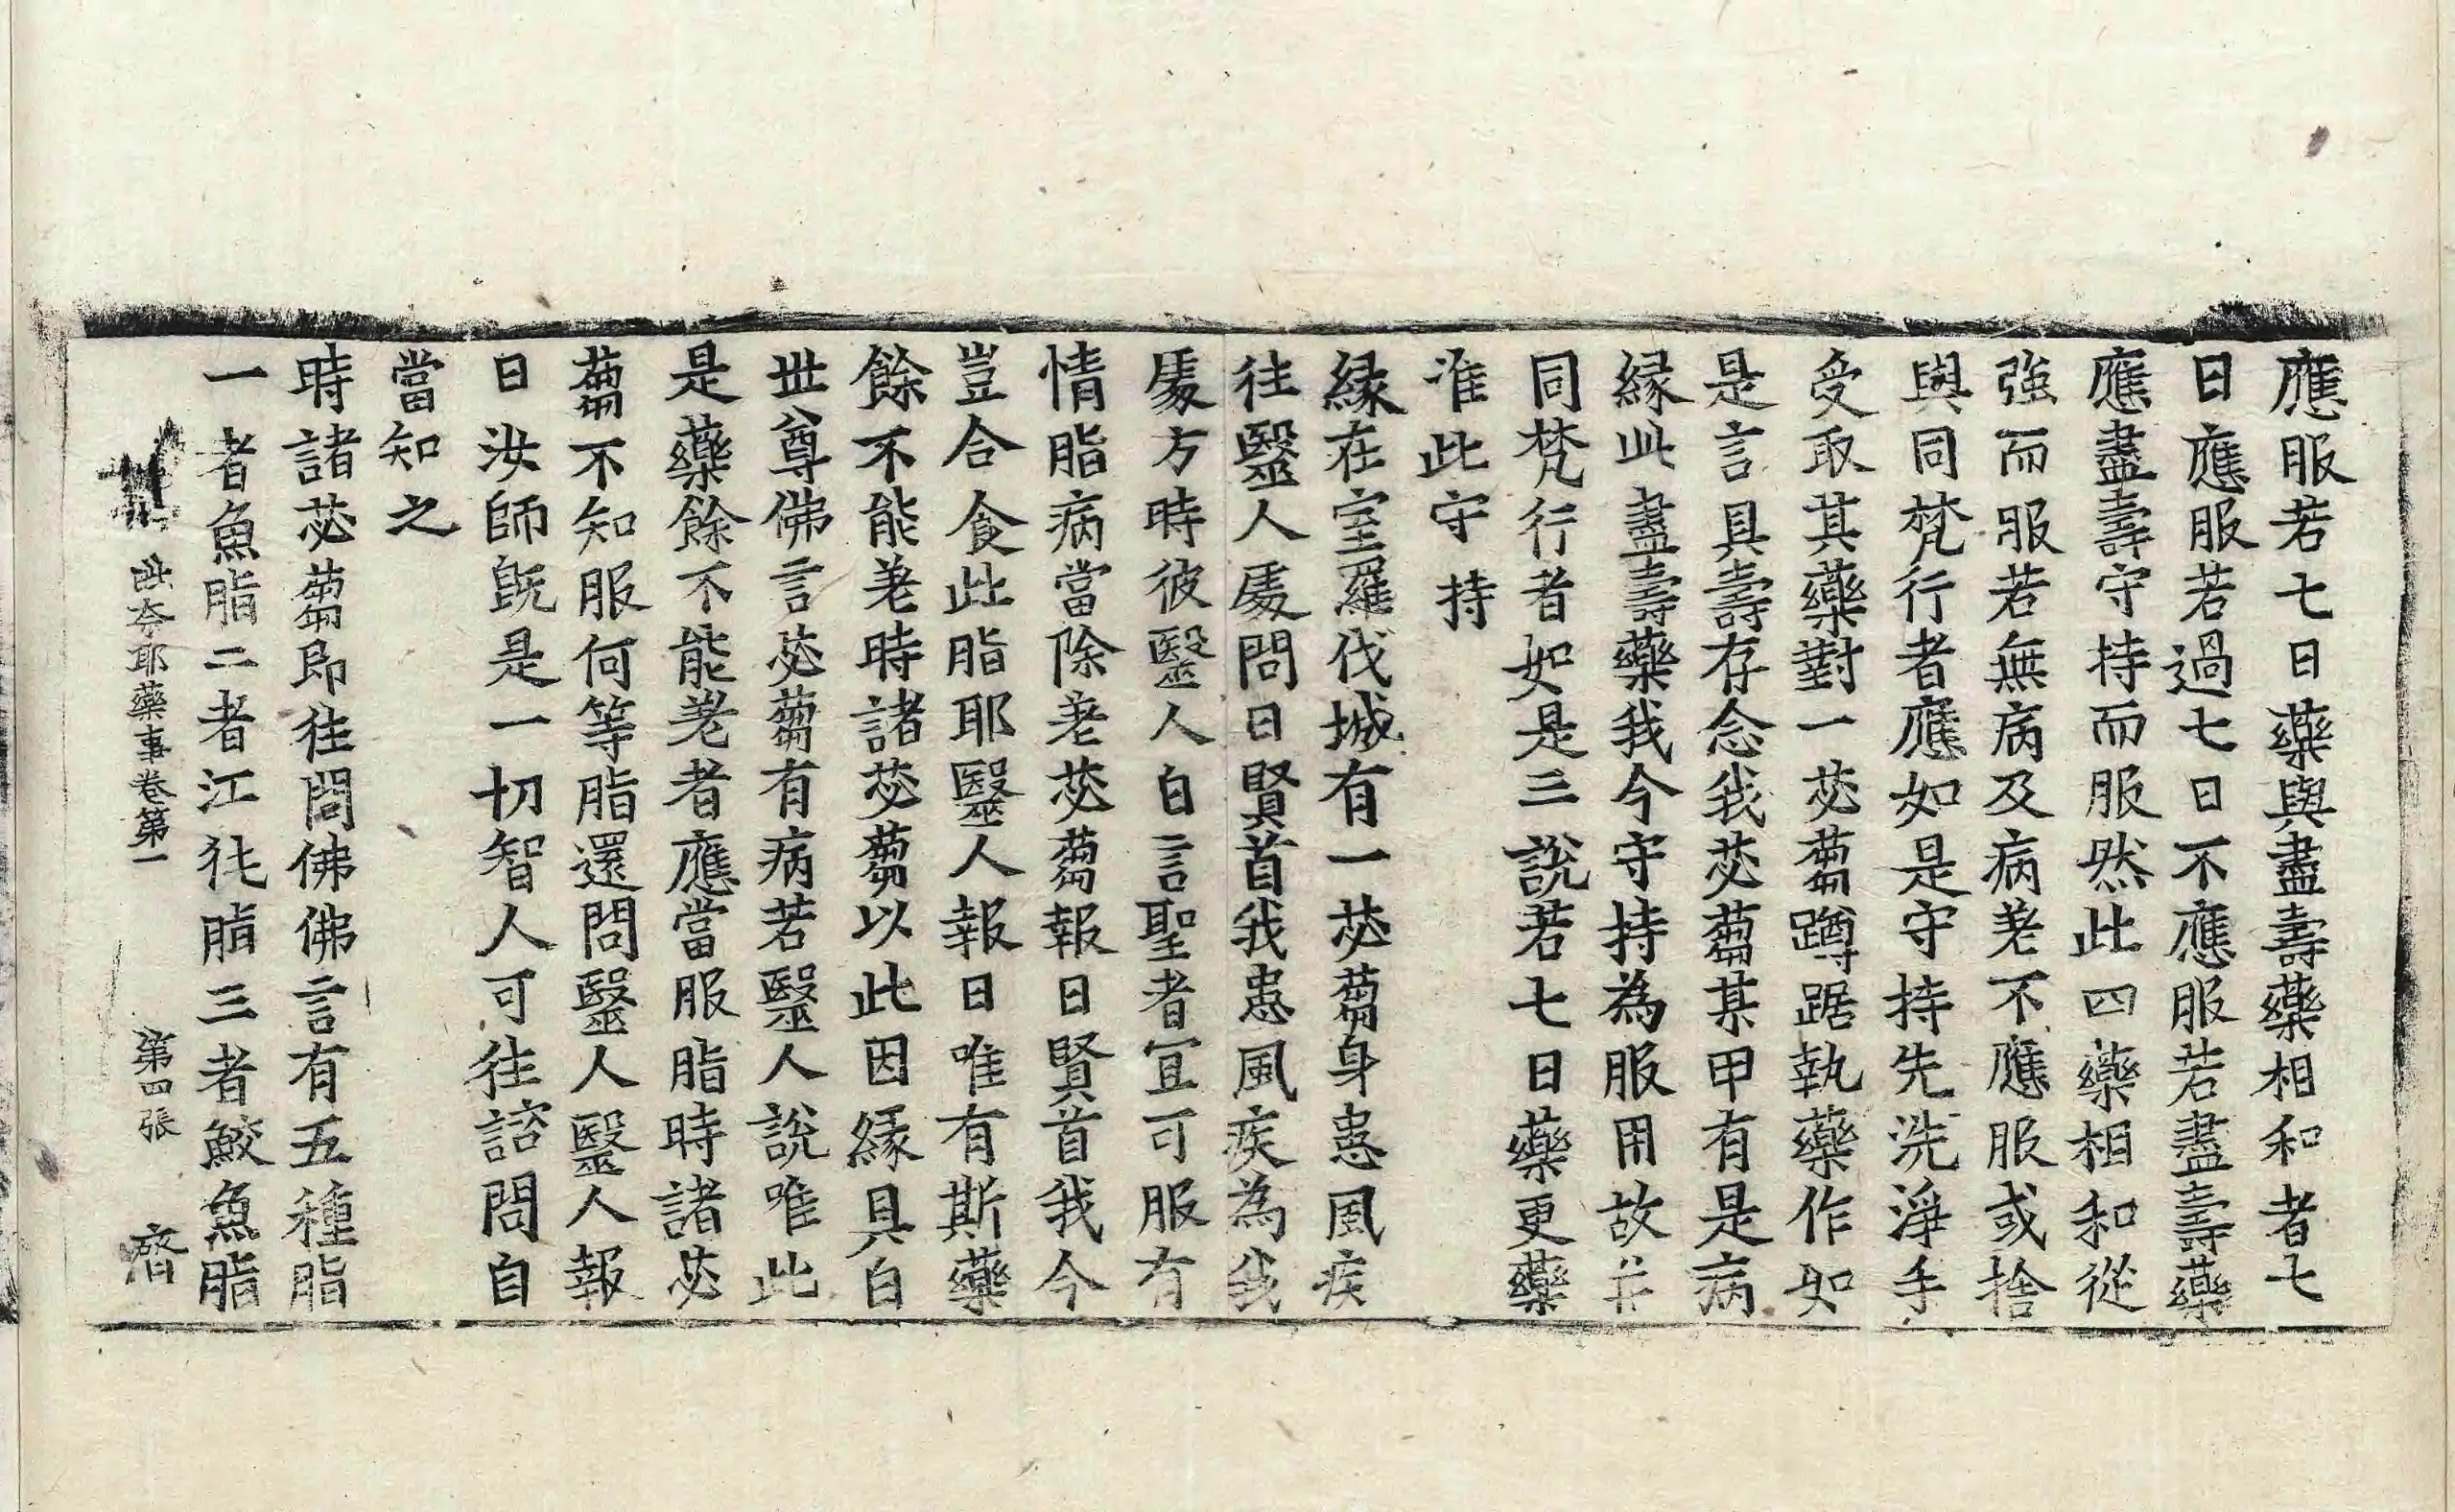 應服若七日藥與盡壽藥相和者七
日應服若過七日不應服若盡壽藥
應盡壽守持而服然此四藥相和從
強而服若無病及病差不應服或捨
與同梵行者應如是守持先洗淨手
受取其藥對一苾蒭蹲踞執藥作如
是言具壽存念我苾蒭某甲有是病
緣此盡壽藥我今守持為服用故并
同梵行者如是三說若七日藥更藥
准此守持
緣在室羅伐城有一苾蒭身患風疾
往醫人處問曰賢首我患風疾為我
處方時彼醫人白言聖者宜可服有
情脂病當除差苾蒭報曰賢首我今
豈合食此脂耶醫人報曰唯有斯藥
餘不能差時諸苾蒭以此因緣具白
世尊佛言苾蒭有病若醫人說唯此
是藥餘不能差者應當服脂時諸苾
蒭不知服何等脂還問醫人醫人報
曰汝師既是一切智人可往諮問自
當知之
時諸苾蒭即往問佛佛言有五種脂
一者魚脂二者江㹠脂三者鮫魚脂
毗奈耶藥事卷第一 第四張 㾕